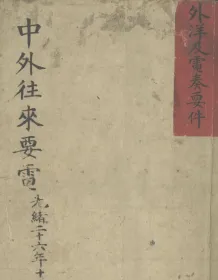 外洋及電奏要件
中外往來要電
光緒二十六年十